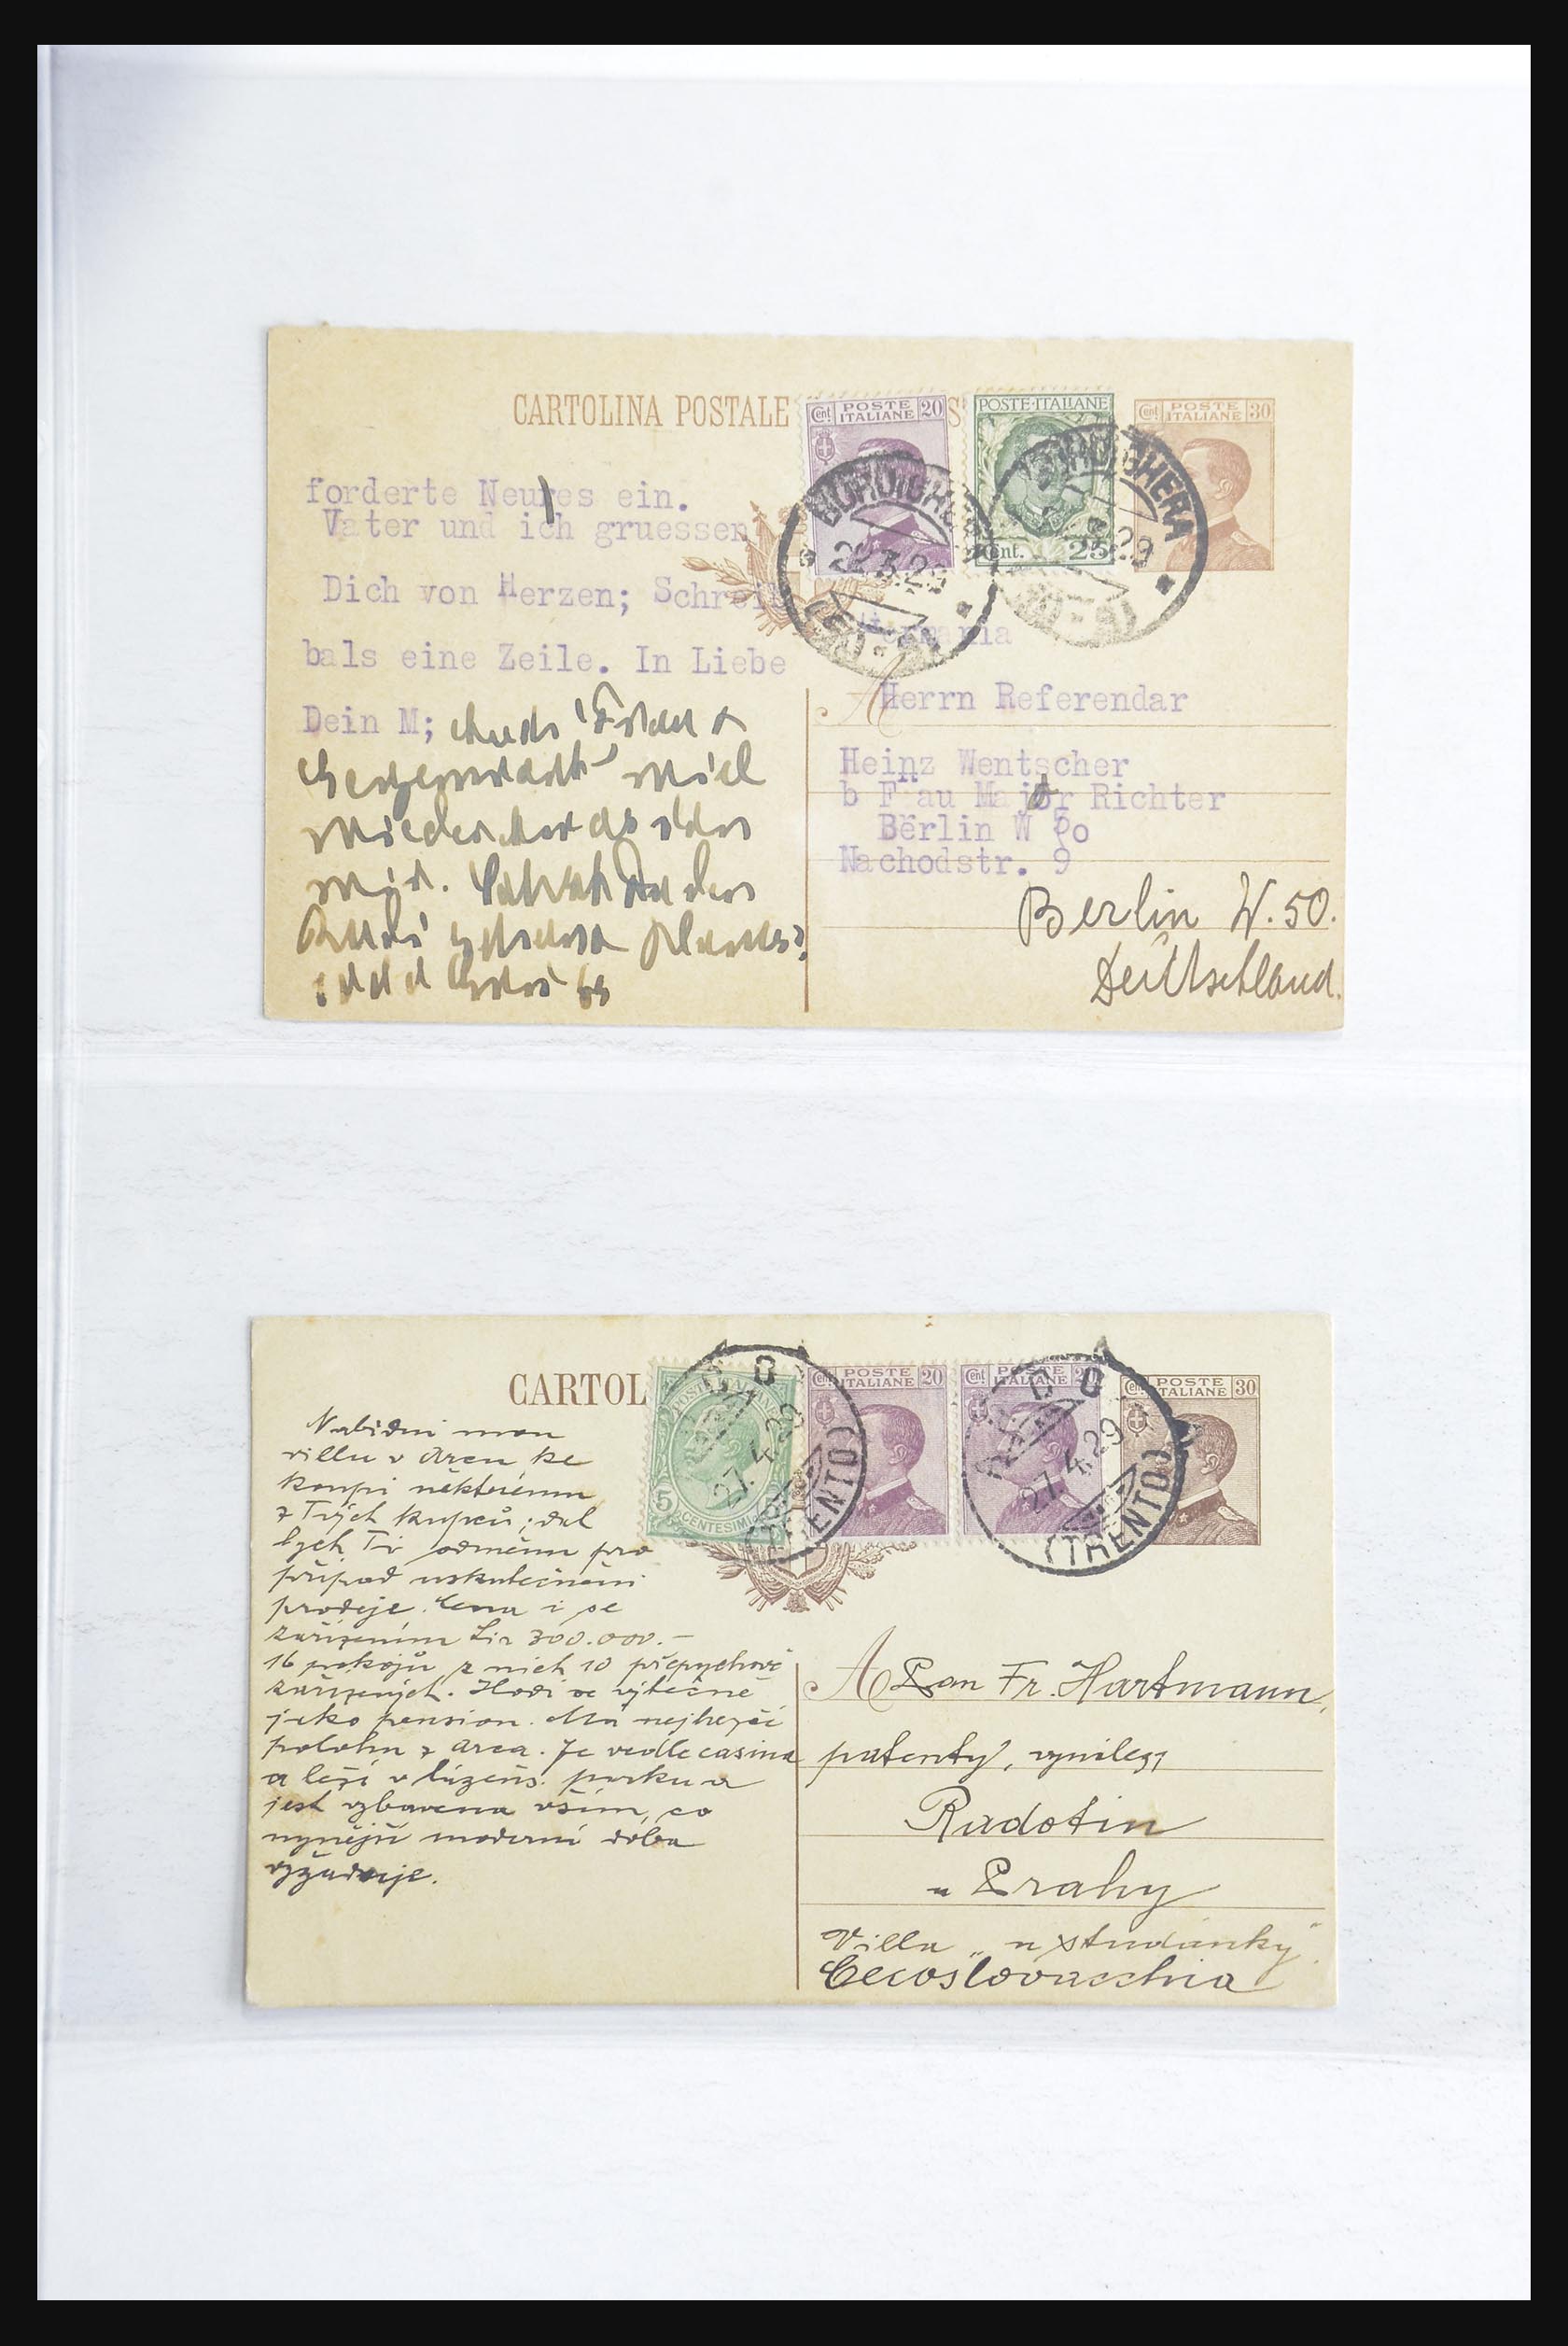 CARTOLINA POSTALE
Cent POSTE ITALIANE 20
POSTE·ITALIANE
Cent. 25
Cent POSTE ITALIANE 30
BORDIGHERA
forderte Neues ein.
Vater und ich gruessen
Dich von Herzen; Schreib
bals eine Zeile. In Liebe
Dein M;
Germania
A
Herrn Referendar
Heinz Wentscher
b Frau Major Richter
Berlin W 50
Nachodstr. 9
Berlin W. 50.
Deutschland.
CARTOL
5 CENTESIMI
Cent POSTE ITALIANE 20
Cent POSTE ITALIANE 20
Cent POSTE ITALIANE 30
27.4.29
(TRENTO)
27.4.29
(TRENTO)
Nabídni mou
villu v Arcu ke
koupi některému
z Tvých kupců; dal
bych Ti odměnu pro
případ uskutečnění
prodeje. Cena i se
zařízením Lir 300.000.-
16 pokojů, z nich 10 přepychově
zařízených. Hodí se výtečně
jako pension. Má nejhezčí
polohu z Arca. Je vedle casina
a leží v lázeňs. parku a
jest vybavena vším, co
nynější moderní doba
vyžaduje.
A Pan Fr. Hartmann,
patenty, vynálezy
Radotín
u Prahy
Villa „u studánky"
Cecoslovacchia